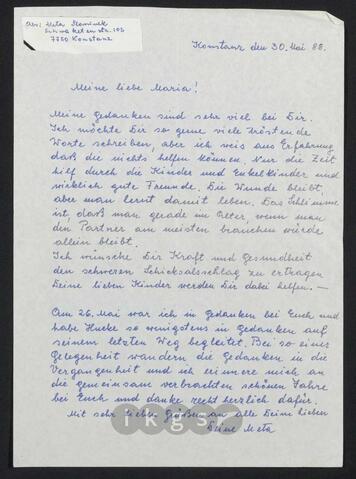 Abs: Meta
Schwaketenstr. 103
7750 Konstanz
Konstanz den 30. Mai 88.
Meine liebe Maria!
Meine gedanken sind sehr viel bei Dir.
Ich möchte Dir so gerne viele tröstende
Worte schreiben, aber ich weis aus Erfahrung
daß die nichts helfen können. Nur die Zeit
hilf durch die Kinder und Enkelkinder und
wirklich gute Freunde. Die Wunde bleibt,
aber man lernt damit leben. Das Schlimme
ist, daß man gerade im Alter, wenn man
den Partner am meisten brauchen würde
allein bleibt.
Ich wünsche Dir Kraft und gesundheit
den schweren Schicksalsschlag zu ertragen
Deine lieben Kinder werden Dir dabei helfen. –
Am 26. Mai war ich in gedanken bei Euch und
habe so wenigstens in gedanken auf
seinem letzten Weg begleitet. Bei so einer
gelegenheit wandern die gedanken in die
Vergangenheit und ich erinnere mich an
die gemeinsam verbrachten schönen Jahre
bei Euch und danke recht herzlich dafür.
Mit sehr lieben Grüßen an alle Deine lieben
Deine Meta
ikgs